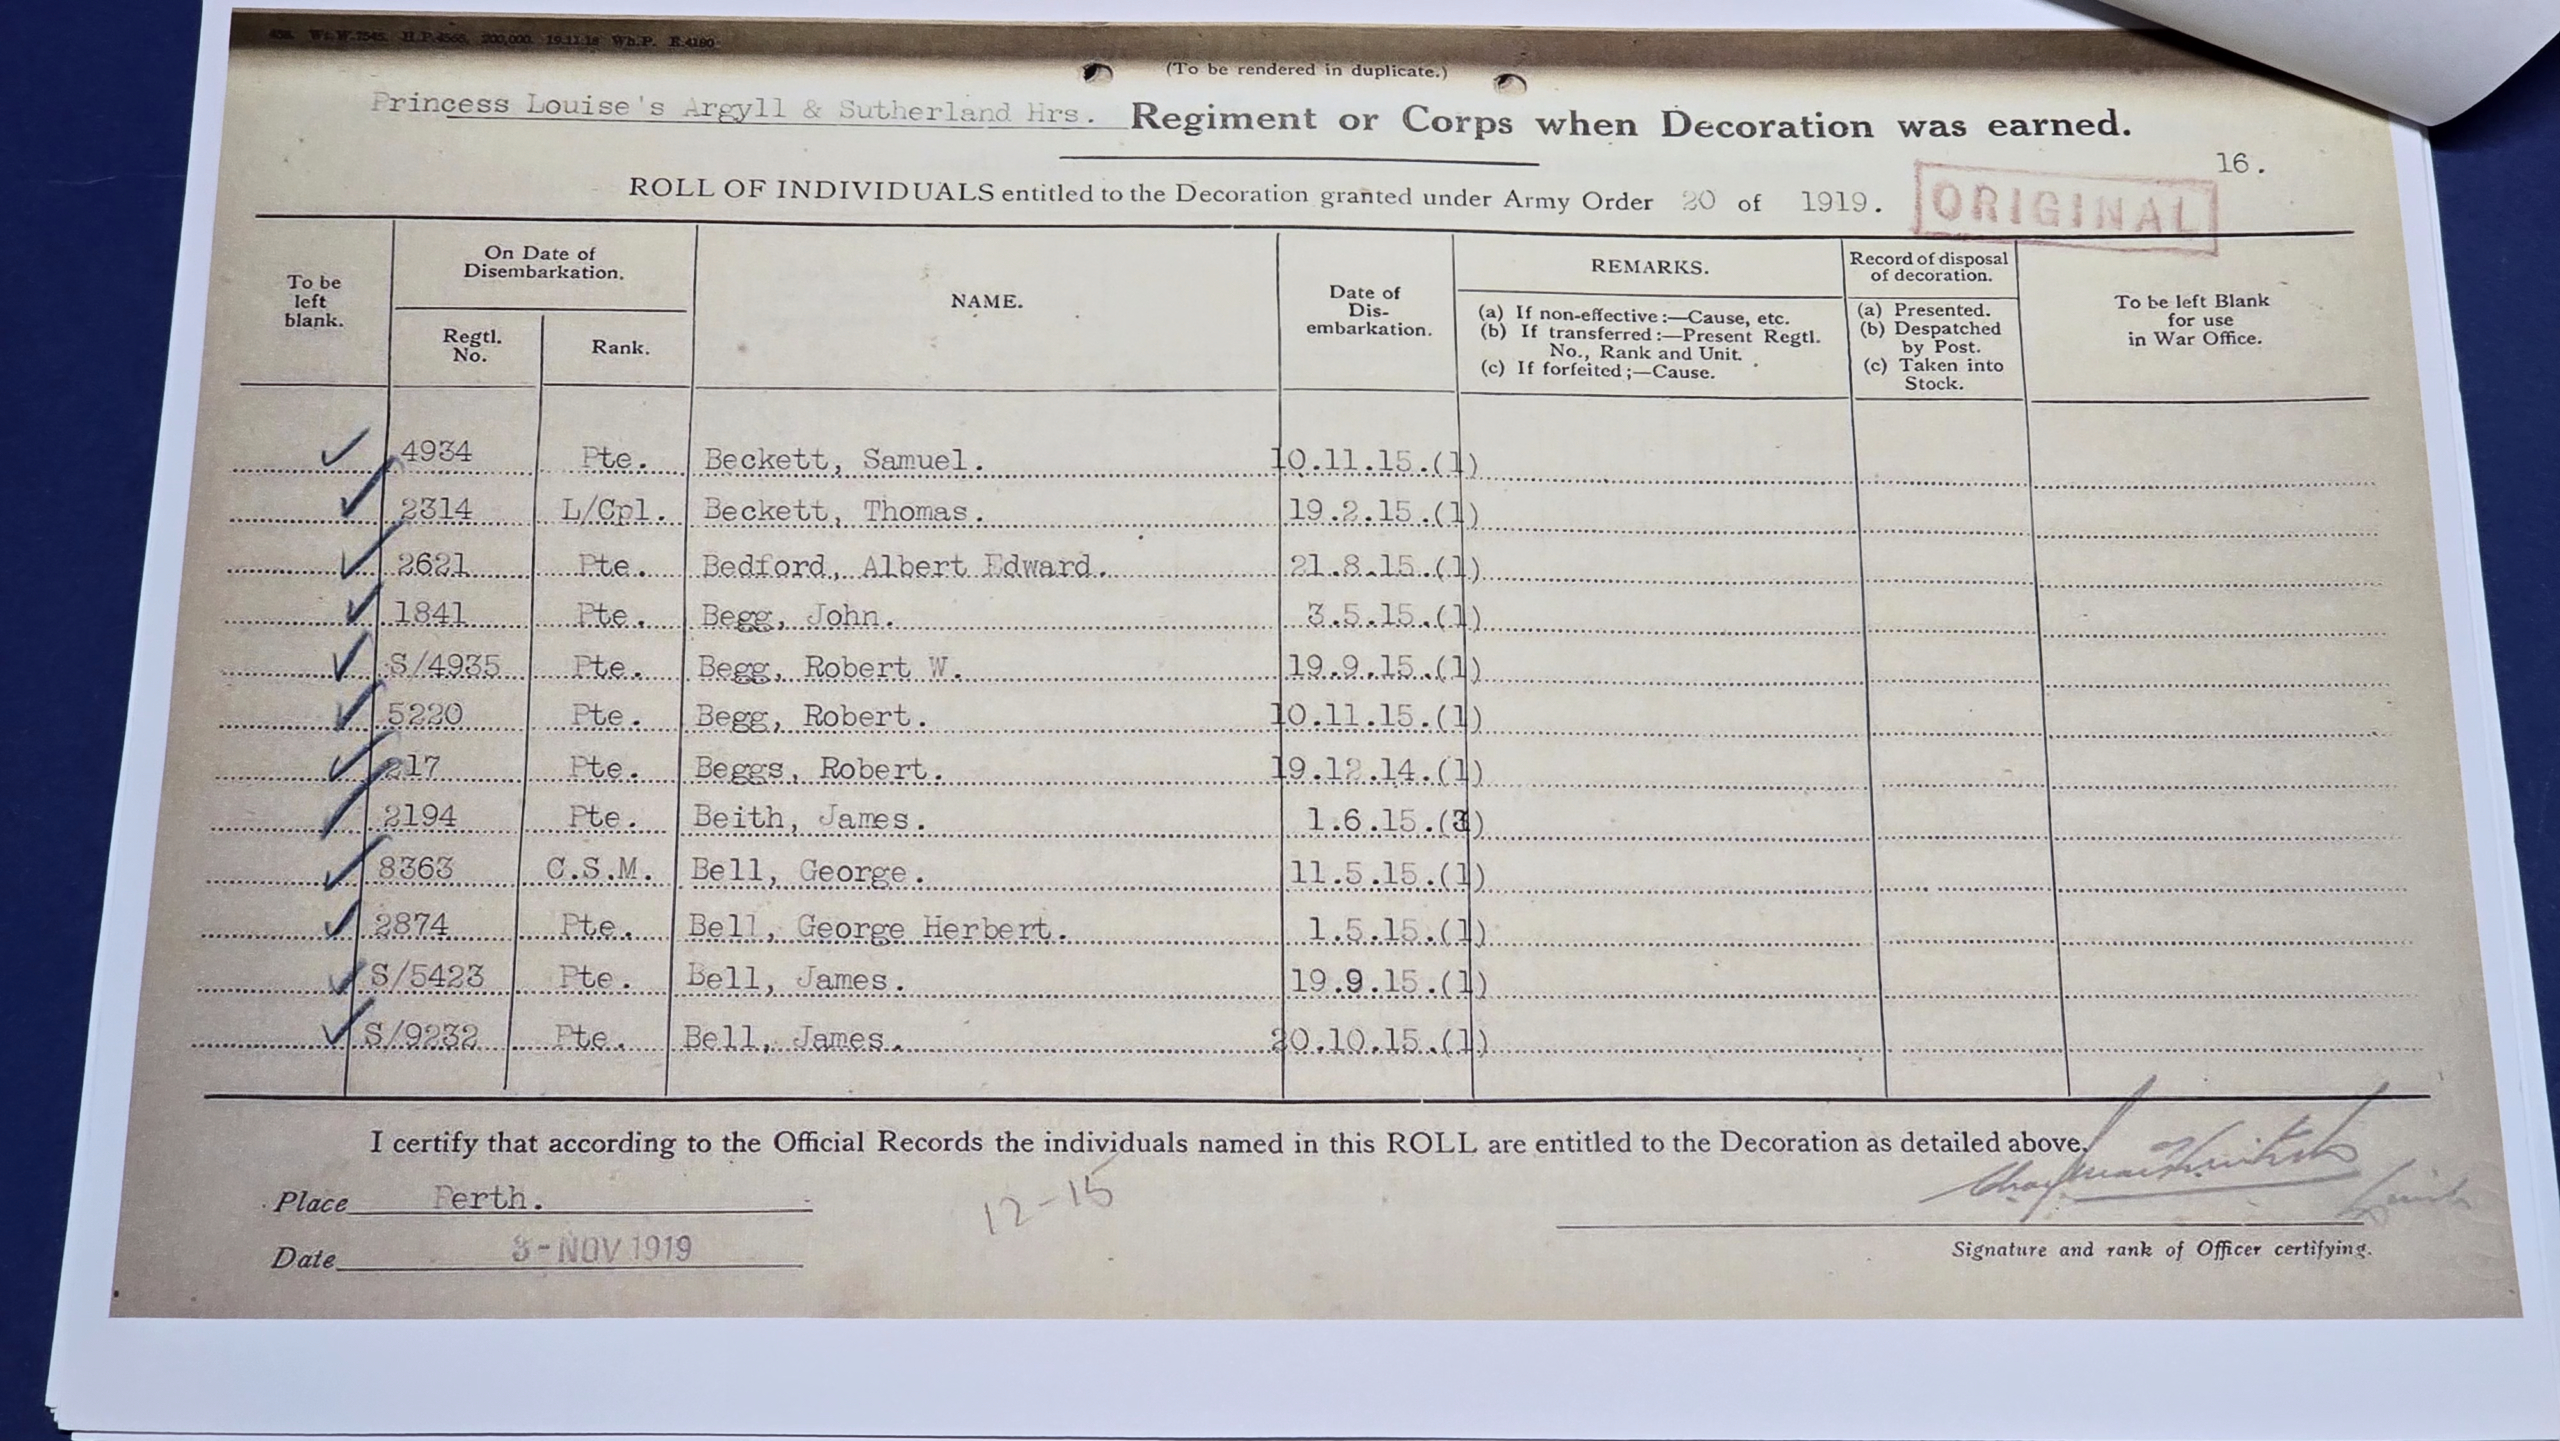 (To be rendered in duplicate.)
Princess Louise's Argyll & Sutherland Hrs. Regiment or Corps when Decoration was earned.
16.
ROLL OF INDIVIDUALS entitled to the Decoration granted under Army Order 20 of 1919.
ORIGINAL
To be left blank. On Date of Disembarkation. NAME. Date of Dis-embarkation. REMARKS. Record of disposal of decoration. To be left Blank for use in War Office.
Regtl. No. Rank.
(a) If non-effective:—Cause, etc.
(b) If transferred:—Present Regtl. No., Rank and Unit.
(c) If forfeited;—Cause.
(a) Presented.
(b) Despatched by Post.
(c) Taken into Stock.
4934 Pte. Beckett, Samuel. 10.11.15.(1)
2314 L/Cpl. Beckett, Thomas. 19.2.15.(1)
2621 Pte. Bedford, Albert Edward. 21.8.15.(1)
1841 Pte. Begg, John. 3.5.15.(1)
S/4935 Pte. Begg, Robert W. 19.9.15.(1)
5220 Pte. Begg, Robert. 10.11.15.(1)
217 Pte. Beggs, Robert. 19.12.14.(1)
2194 Pte. Beith, James. 1.6.15.(3)
8363 C.S.M. Bell, George. 11.5.15.(1)
2874 Pte. Bell, George Herbert. 1.5.15.(1)
S/5423 Pte. Bell, James. 19.9.15.(1)
S/9232 Pte. Bell, James. 20.10.15.(1)
I certify that according to the Official Records the individuals named in this ROLL are entitled to the Decoration as detailed above.
Place Perth.
12-15
Date 3-NOV 1919
Signature and rank of Officer certifying.